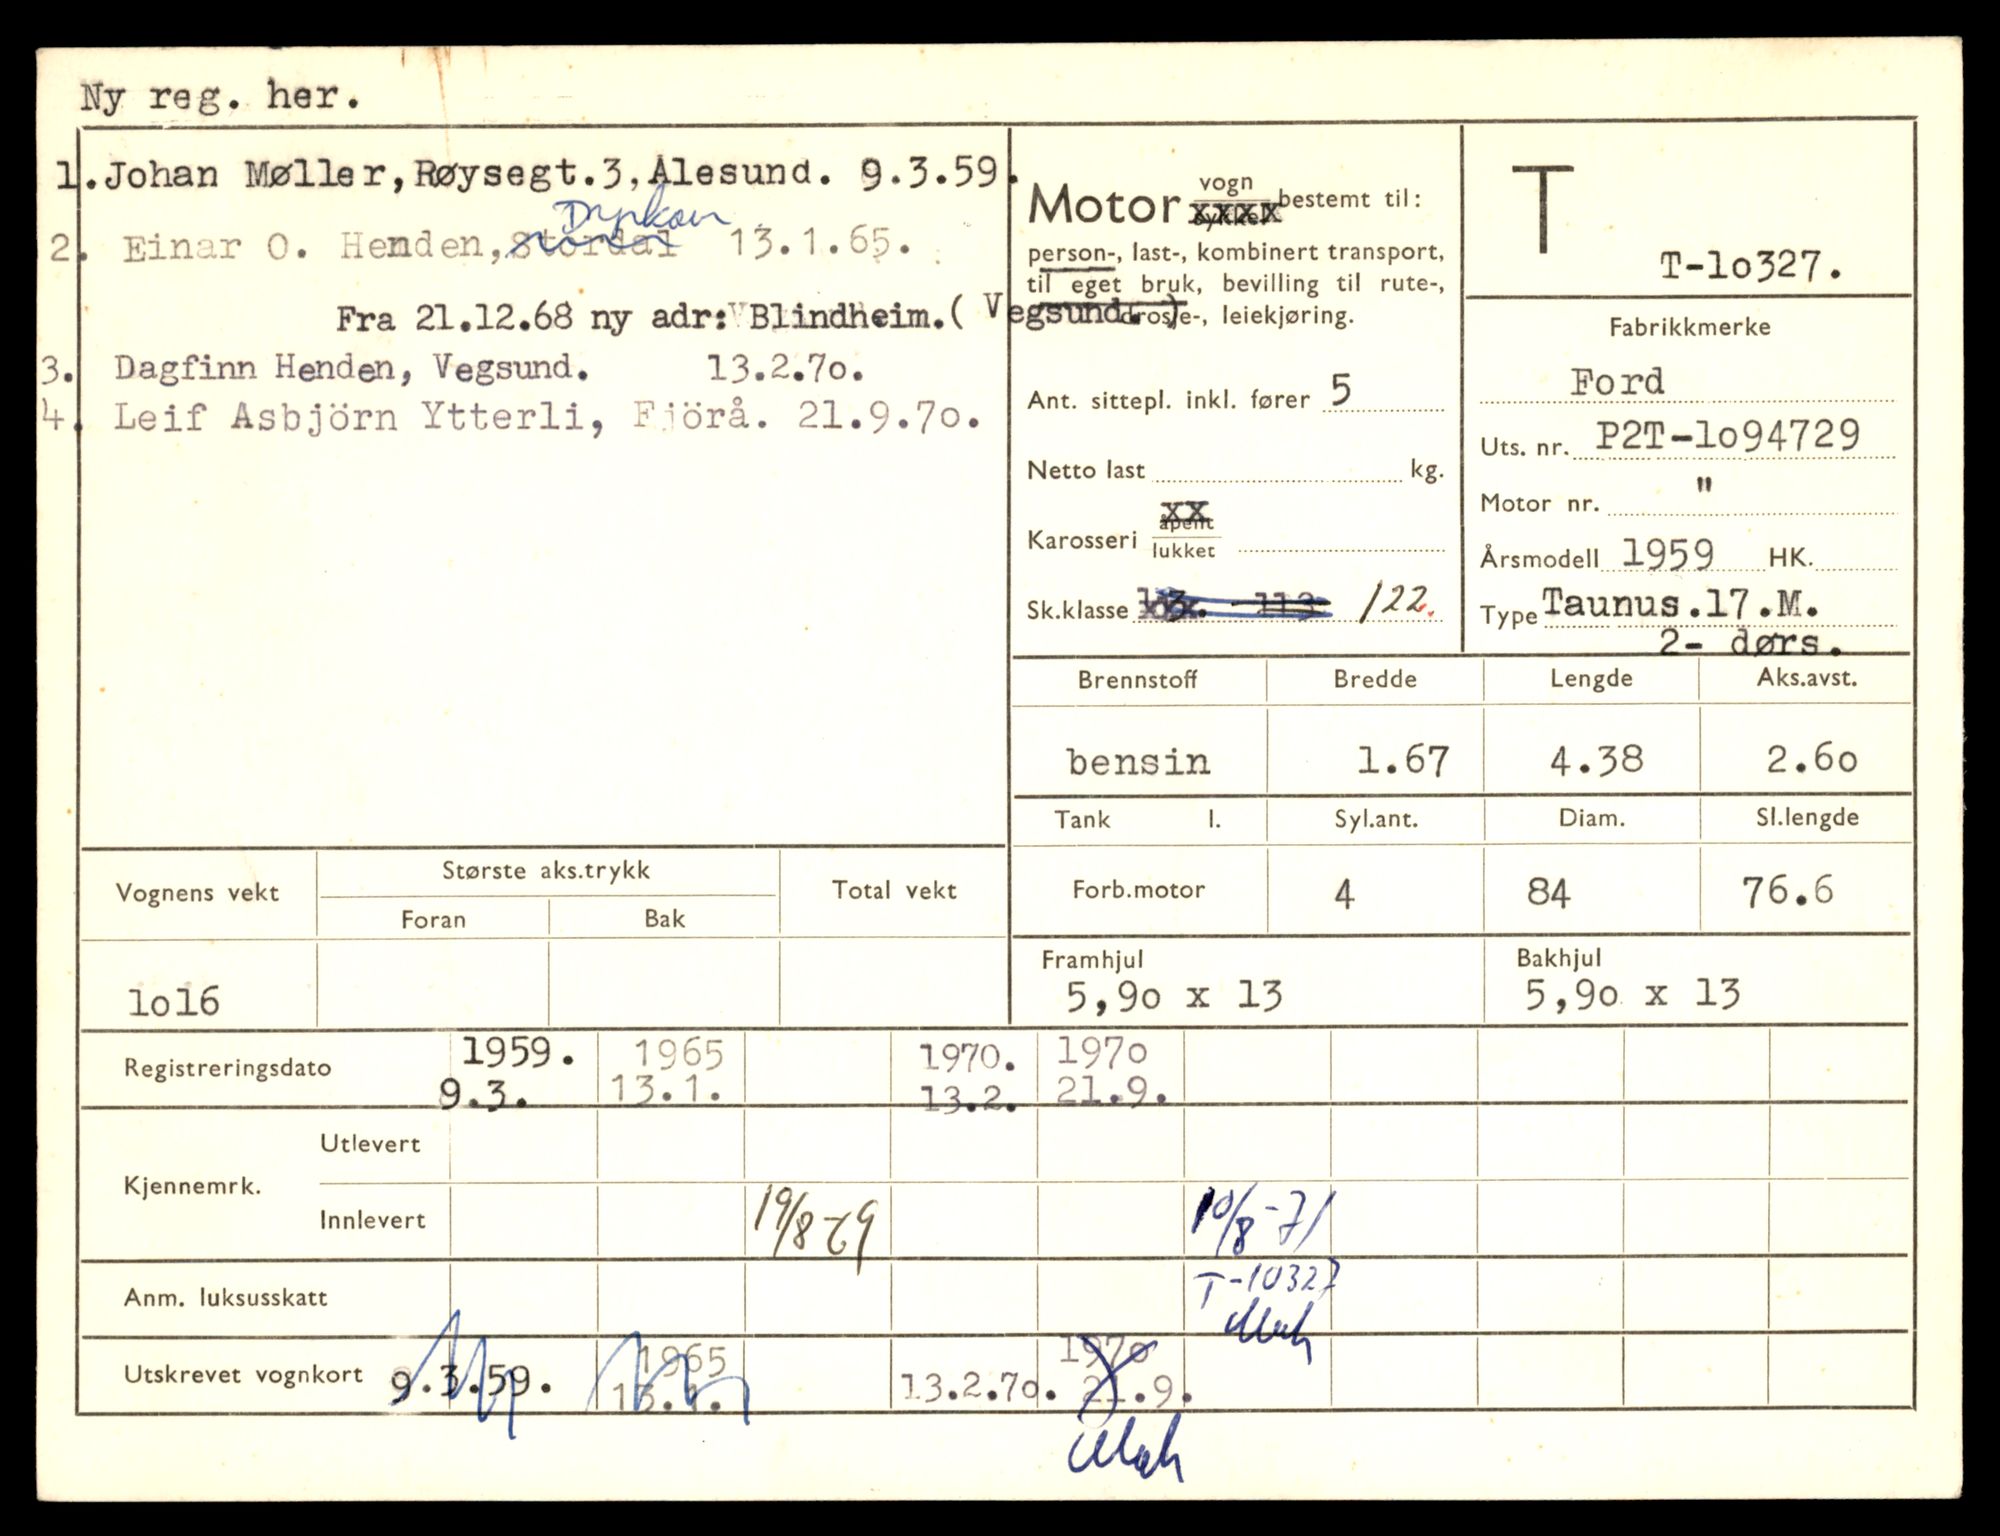 Ny reg. her.
1. Johan Møller, Røysegt.3, Ålesund. 9.3.59.
2. Einar O. Henden, Stordal 13.1.65.
Fra 21.12.68 ny adr: Blindheim. ( Vegsund. )
3. Dagfinn Henden, Vegsund. 13.2.7o.
4. Leif Asbjörn Ytterli, Fjörå. 21.9.7o.
Motor vogn sykkel bestemt til:
person-, last-, kombinert transport,
til eget bruk, bevilling til rute-,
drosje-, leiekjøring.
Ant. sittepl. inkl. fører 5
Netto last kg.
Karosseri åpent lukket
Sk.klasse 113 122.
T
T-lo327.
Fabrikkmerke
Ford
Uts. nr. P2T-lo94729
Motor nr. "
Årsmodell 1959 HK.
Type Taunus.17.M.
2- dørs.
Brennstoff Bredde Lengde Aks.avst.
bensin 1.67 4.38 2.6o
Tank l. Syl.ant. Diam. Sl.lengde
Forb.motor 4 84 76.6
Framhjul Bakhjul
5,9o x 13 5,9o x 13
Vognens vekt Største aks.trykk Total vekt
Foran Bak
lol6
Registreringsdato 1959. 1965 1970. 197o
9.3. 13.1. 13.2. 21.9.
Kjennemrk. Utlevert
Innlevert 19/8-69 10/8-71
Anm. luksusskatt T-10327
Utskrevet vognkort 9.3.59. 1965 13.1. 13.2.7o. 197o 21.9.